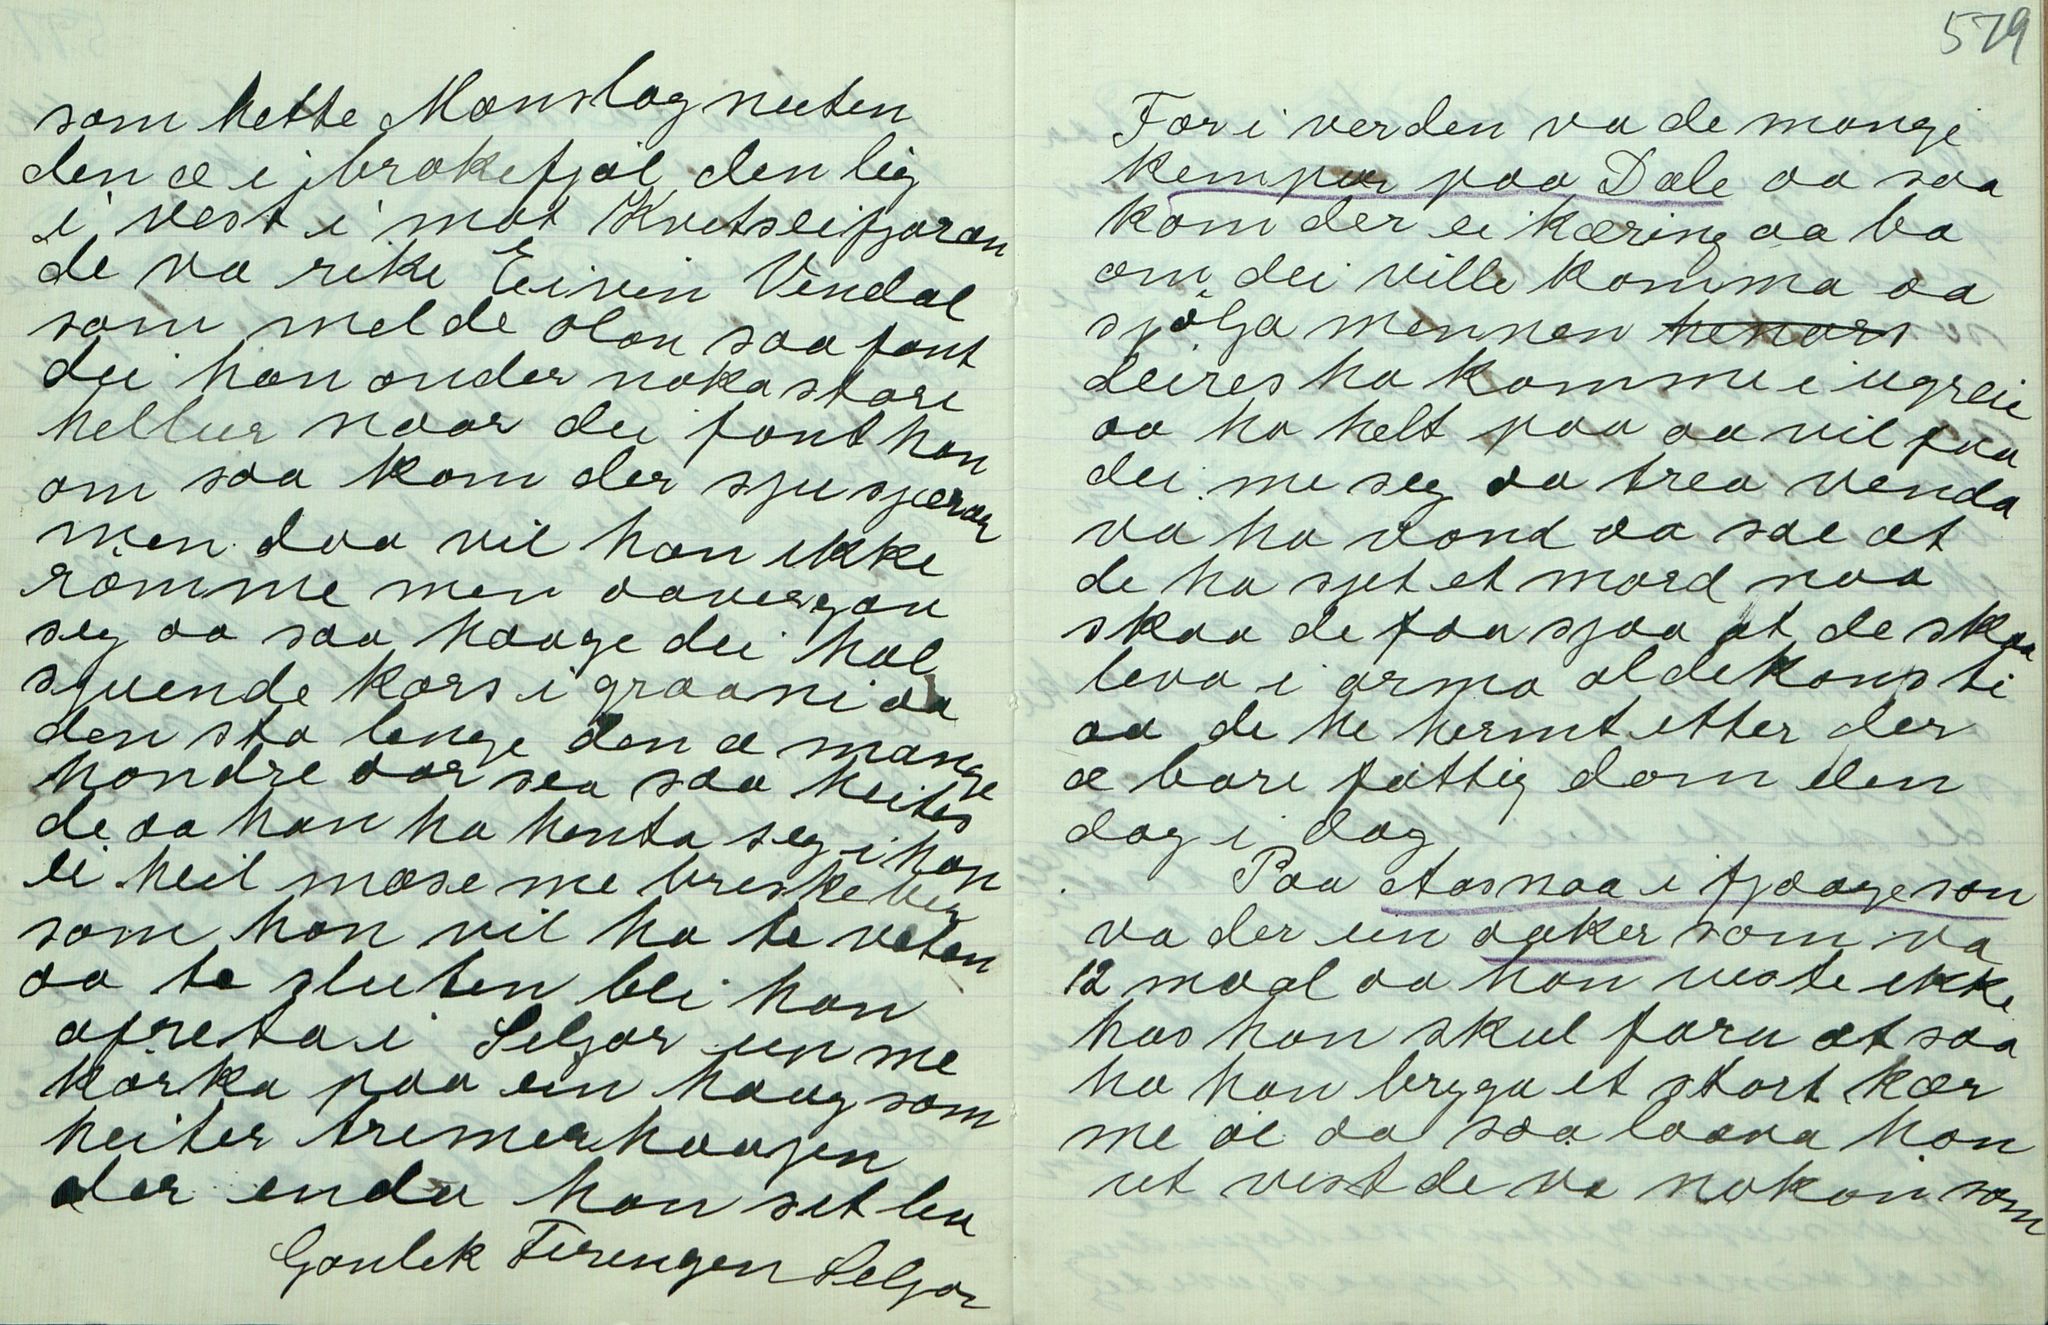 som hette Manslag nuten
den æ i brokefjøl den lig
i vest i mot Kvitseifjoran
de va rike Eivin Vindal
som melde olau saa fant
dei han onder noka store
hellur naar dei fant han
om saa kom der sju sjærar
men daa vil han ikke
römme men aavergav
seg aa saa haage dei hol
sjuende kors i graani aa
den sto lenge den æ mange
hondre aar sea saa heites
de aa han ha henta seg i han
ei heil mase me breske ber
som han vil ha te veten
aa te slutten blei han
afreta i Seljor un me
körka paa ein haug som
heiter tremerhaagen
der enda han sit lev
Gonlek Firingen Seljor
579
For i verden va de mange
kempur paa Dale aa saa
kom der ei kæring aa ba
om dei ville komma aa
sjølga mennen henars
deires ha komme i ugreie
aa ha helt paa aa vil faa
dei me seg aa trea venda
va ha vond aa sae at
de ha sjet et mord naa
skaa de faa sjaa at de skaa
leva i arma al dekons ti
aa de he hermt etter der
æ bare fattig dom den
dag i dag
Paa Aasnaa i fjaageson
va der ein aaker som va
12 maal aa han viste ikke
has han skul faru at saa
ha han brygga et stort kær
me øl aa saa laava han
ut vist de va nokon som